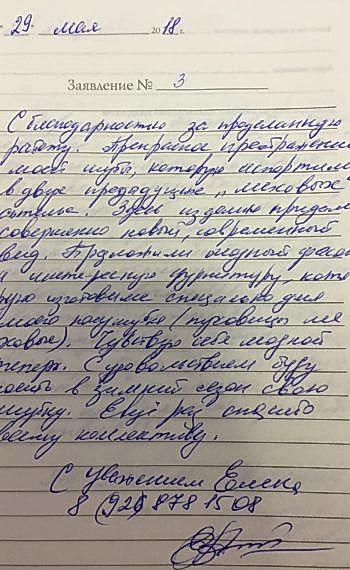 29 мая 2018 г.
Заявление № 3
С благодарностью за проделанную
работу. Прекрасное преображение
моей шубы, которую испортили
в двух предыдущих „меховых"
ателье. Здесь изделию придали
совершенно новый современный
вид. Предложили модный фасон
и интересную фурнитуру, кото
рую изготовили специально для
моего полушубка (пуговицы ме
ховые). Чувствую себя модной
теперь. С удовольствием буду
носить в зимний сезон свою
шубку. Ещё раз спасибо
всему коллективу.
С уважением Елена
8 (926 878 15 08